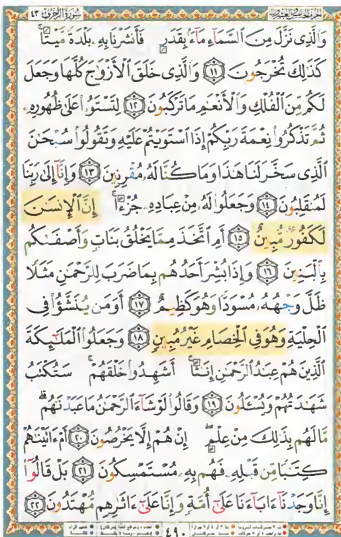 سورة الزخرف ٤٣
وَالَّذِى نَزَّلَ مِنَ السَّمَآءِ مَآءً بِقَدَرٍ فَأَنشَرْنَا بِهِۦ بَلْدَةً مَّيْتًا ۚ
كَذَٰلِكَ تُخْرَجُونَ ١١ وَالَّذِى خَلَقَ الْأَزْوَٰجَ كُلَّهَا وَجَعَلَ
لَكُم مِّنَ الْفُلْكِ وَالْأَنْعَٰمِ مَا تَرْكَبُونَ ١٢ لِتَسْتَوُۥا عَلَىٰ ظُهُورِهِۦ
ثُمَّ تَذْكُرُوا نِعْمَةَ رَبِّكُمْ إِذَا اسْتَوَيْتُمْ عَلَيْهِ وَتَقُولُوا سُبْحَٰنَ
الَّذِى سَخَّرَ لَنَا هَٰذَا وَمَا كُنَّا لَهُۥ مُقْرِنِينَ ١٣ وَإِنَّآ إِلَىٰ رَبِّنَا
لَمُنقَلِبُونَ ١٤ وَجَعَلُوا لَهُۥ مِنْ عِبَادِهِۦ جُزْءًا ۚ إِنَّ الْإِنسَٰنَ
لَكَفُورٌ مُّبِينٌ ١٥ أَمِ اتَّخَذَ مِمَّا يَخْلُقُ بَنَاتٍ وَأَصْفَىٰكُم
بِالْبَنِينَ ١٦ وَإِذَا بُشِّرَ أَحَدُهُم بِمَا ضَرَبَ لِلرَّحْمَٰنِ مَثَلًا
ظَلَّ وَجْهُهُۥ مُسْوَدًّا وَهُوَ كَظِيمٌ ١٧ أَوَمَن يُنَشَّؤُا فِى
الْحِلْيَةِ وَهُوَ فِى الْخِصَامِ غَيْرُ مُبِينٍ ١٨ وَجَعَلُوا الْمَلَٰٓئِكَةَ
الَّذِينَ هُمْ عِبَٰدُ الرَّحْمَٰنِ إِنَٰثًا ۚ أَشَهِدُوا خَلْقَهُمْ ۚ سَتُكْتَبُ
شَهَٰدَتُهُمْ وَيُسْـَٔلُونَ ١٩ وَقَالُوا لَوْ شَآءَ الرَّحْمَٰنُ مَا عَبَدْنَٰهُم ۗ
مَّا لَهُم بِذَٰلِكَ مِنْ عِلْمٍ ۖ إِنْ هُمْ إِلَّا يَخْرُصُونَ ٢٠ أَمْ ءَاتَيْنَٰهُمْ
كِتَٰبًا مِّن قَبْلِهِۦ فَهُم بِهِۦ مُسْتَمْسِكُونَ ٢١ بَلْ قَالُوٓا
إِنَّا وَجَدْنَآ ءَابَآءَنَا عَلَىٰٓ أُمَّةٍ وَإِنَّا عَلَىٰٓ ءَاثَٰرِهِم مُّهْتَدُونَ ٢٢
٤٩٠